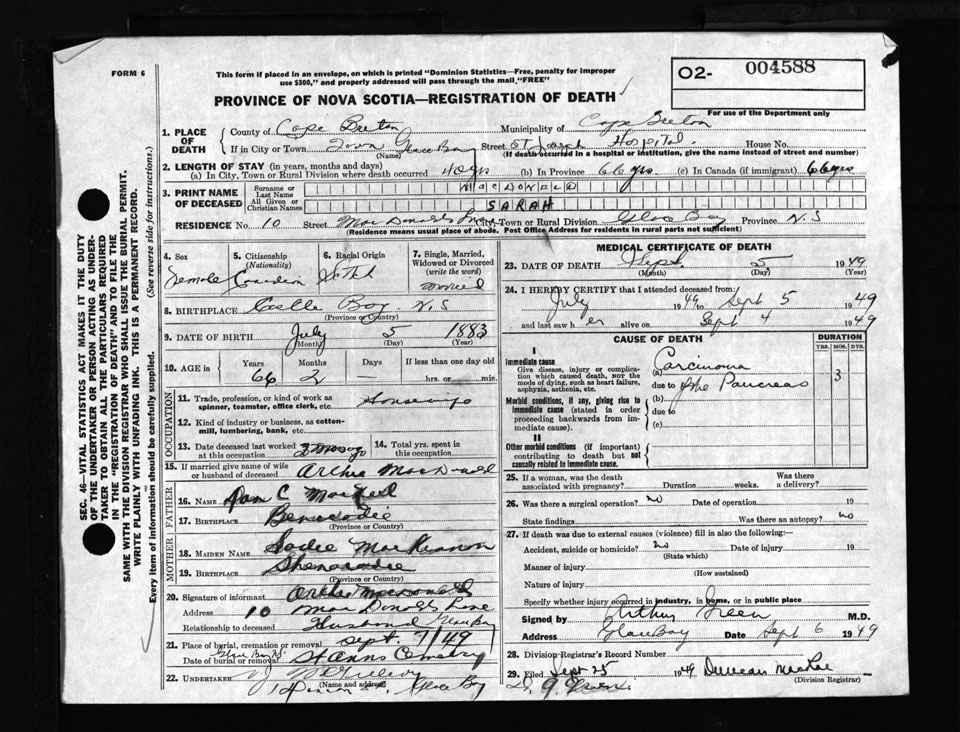 FORM 6
This form if placed in an envelope, on which is printed "Dominion Statistics—Free, penalty for improper
use $300," and properly addressed will pass through the mail, "FREE"
O2- 004588
PROVINCE OF NOVA SCOTIA—REGISTRATION OF DEATH
For use of the Department only
1. PLACE OF DEATH County of Cape Breton Municipality of Cape Breton
If in City or Town Town Glace Bay Street St Joseph Hospital. House No.
(Name) (If death occurred in a hospital or institution, give the name instead of street and number)
2. LENGTH OF STAY (in years, months and days)
(a) In City, Town or Rural Division where death occurred 40 yrs (b) In Province 66 yrs. (c) In Canada (if immigrant) 66 yrs
3. PRINT NAME OF DECEASED Surname or Last Name MACDONALD
All Given or Christian Names SARAH
RESIDENCE No. 10 Street MacDonalds Lane City, Town or Rural Division Glace Bay Province N.S
(Residence means usual place of abode. Post Office Address for residents in rural parts not sufficient)
4. Sex Female
5. Citizenship (Nationality) Canadian
6. Racial Origin
7. Single, Married, Widowed or Divorced (write the word) Married
8. BIRTHPLACE Castle Bay N.S
(Province or Country)
9. DATE OF BIRTH July 5 1883
(Month) (Day) (Year)
10. AGE in Years Months Days If less than one day old
66 2 — hrs. or min.
OCCUPATION
11. Trade, profession, or kind of work as spinner, teamster, office clerk, etc. Housewife
12. Kind of industry or business, as cotton-mill, lumbering, bank, etc.
13. Date deceased last worked at this occupation 2 mos ago
14. Total yrs. spent in this occupation
15. If married give name of wife or husband of deceased Archie MacDonald
FATHER
16. NAME Dan C MacNeil
17. BIRTHPLACE Benacadie
(Province or Country)
MOTHER
18. MAIDEN NAME Sadie MacKinnon
19. BIRTHPLACE Shenacadie
(Province or Country)
20. Signature of informant Archie MacDonald
Address 10 MacDonalds Lane
Relationship to deceased Husband Glace Bay
21. Place of burial, cremation or removal Sept. 7/49
Date of burial or removal Glace Bay St Anns Cemetery
22. UNDERTAKER
(Name and address) Glace Bay
MEDICAL CERTIFICATE OF DEATH
23. DATE OF DEATH Sept. 5 1949
(Month) (Day) (Year)
24. I HEREBY CERTIFY that I attended deceased from:
July 1949 to Sept 5 1949
and last saw her alive on Sept 4 1949
CAUSE OF DEATH DURATION
YRS. MOS. DYS.
I
Immediate cause
Give disease, injury or complication which caused death, NOT the mode of dying, such as heart failure, asphyxia, asthenia, etc.
(a) Carcinoma 3
due to of the Pancreas
Morbid conditions, if any, giving rise to immediate cause (stated in order proceeding backwards from immediate cause.
(b)
due to
(c)
II
Other morbid conditions (if important) contributing to death but not causally related to immediate cause.
25. If a woman, was the death associated with pregnancy? Duration weeks. Was there a delivery?
26. Was there a surgical operation? No Date of operation 19
State findings Was there an autopsy? No
27. If death was due to external causes (violence) fill in also the following:
Accident, suicide or homicide? No Date of injury 19
(State which)
Manner of injury
(How sustained)
Nature of injury
Specify whether injury occurred in industry, in home, or in public place
Signed by Arthur Green M.D.
Address Glace Bay Date Sept 6 1949
28. Division Registrar's Record Number
29. Filed Sept 25 1949 Duncan MacRae
(Division Registrar)
SEC. 46—VITAL STATISTICS ACT MAKES IT THE DUTY
OF THE UNDERTAKER OR PERSON ACTING AS UNDER-
TAKER TO OBTAIN ALL THE PARTICULARS REQUIRED
IN THE "REGISTRATION OF DEATH" AND TO FILE THE
SAME WITH THE DIVISION REGISTRAR WHO SHALL ISSUE THE BURIAL PERMIT.
WRITE PLAINLY WITH UNFADING INK. THIS IS A PERMANENT RECORD.
Every item of information should be carefully supplied. (See reverse side for instructions.)